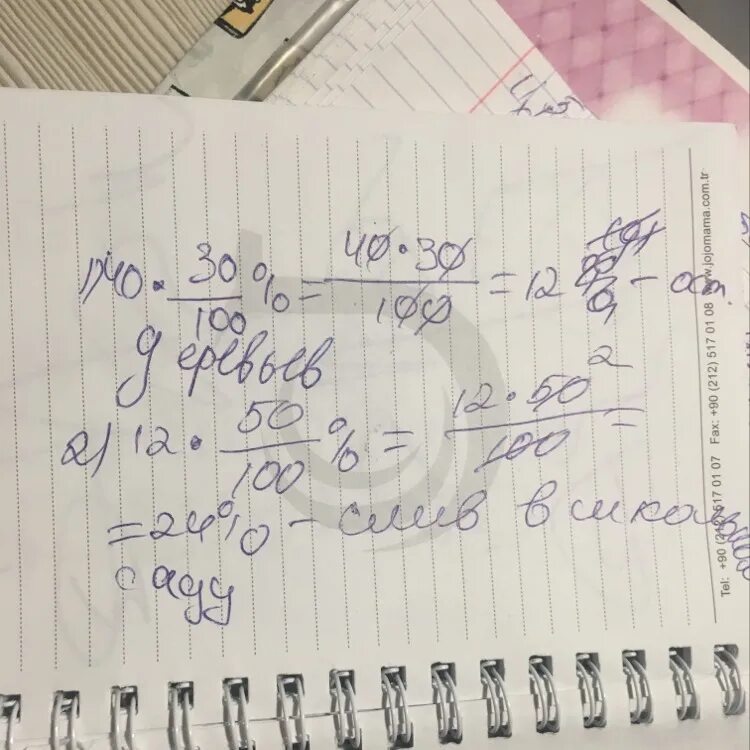 1) 40 · 30/100 % = 40·30/100 = 12 % - ост.
деревьев
2) 12 · 50/100 % = 12·50/100 =
2
= 24% - слив в
саду
Tel: +90 (212) 517 01 07 Fax: +90 (212) 517 01 08 www.jojomama.com.tr